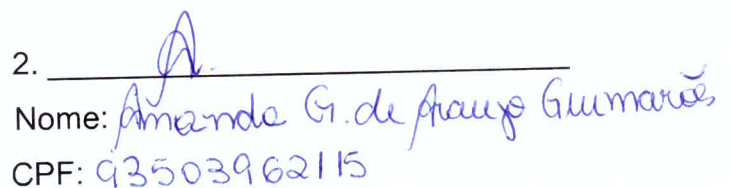 2.
Nome: Amanda G. de Araujo Guimarães
CPF: 93503962115